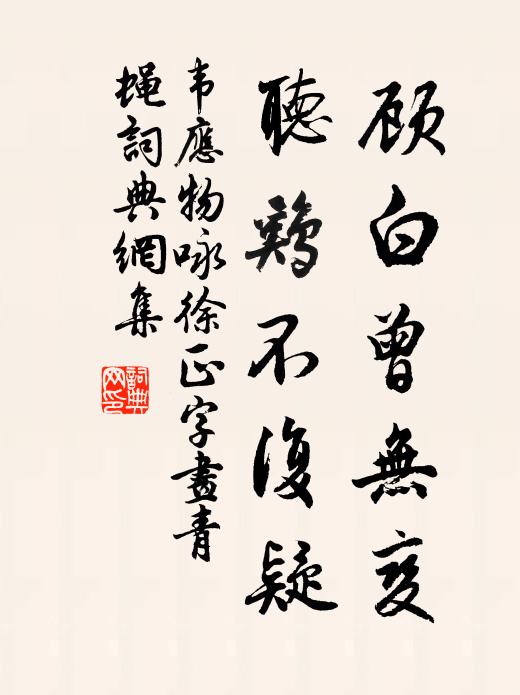 顾白曾無變
聽鷄不復疑
韦應物咏徐正字畫青
蝇詞典網集
詞典
网印